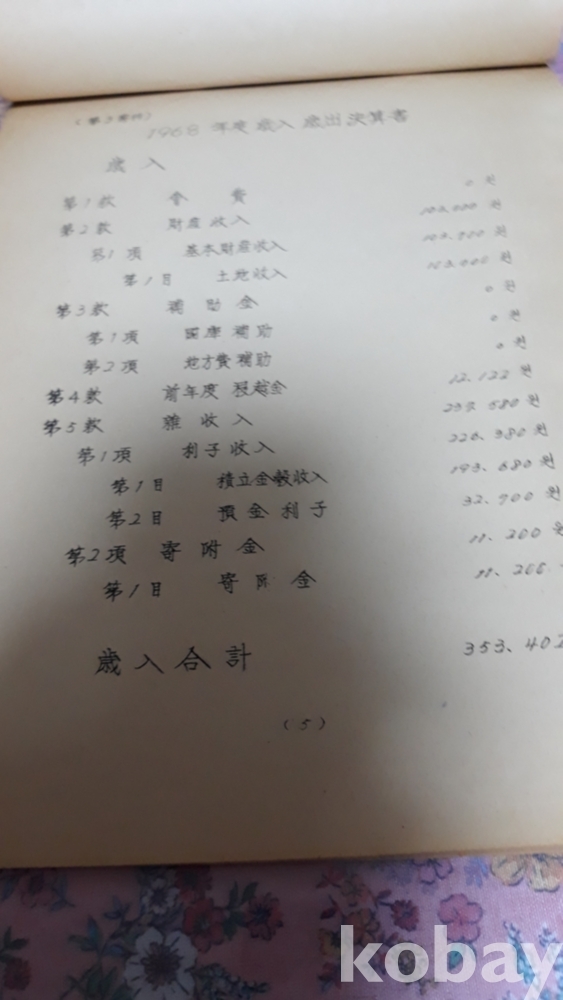 (第3号件)
1968 年度 歳入 歳出 決算書
歳入
第1款 会費 0원
第2款 財産收入
第1項 基本財産收入
第1目 土地收入
第3款 補助金 0원
第1項 国庫補助 0원
第2項 地方費補助 0원
第4款 前年度 繰越金 12.122원
第5款 雜收入
第1項 利子收入
第1目 積立金穀收入 193.680원
第2目 預金利子 32.700원
第2項 寄附金 11.200원
第1目 寄附金 11.200
歳入合計 353.402
(5)
kobay